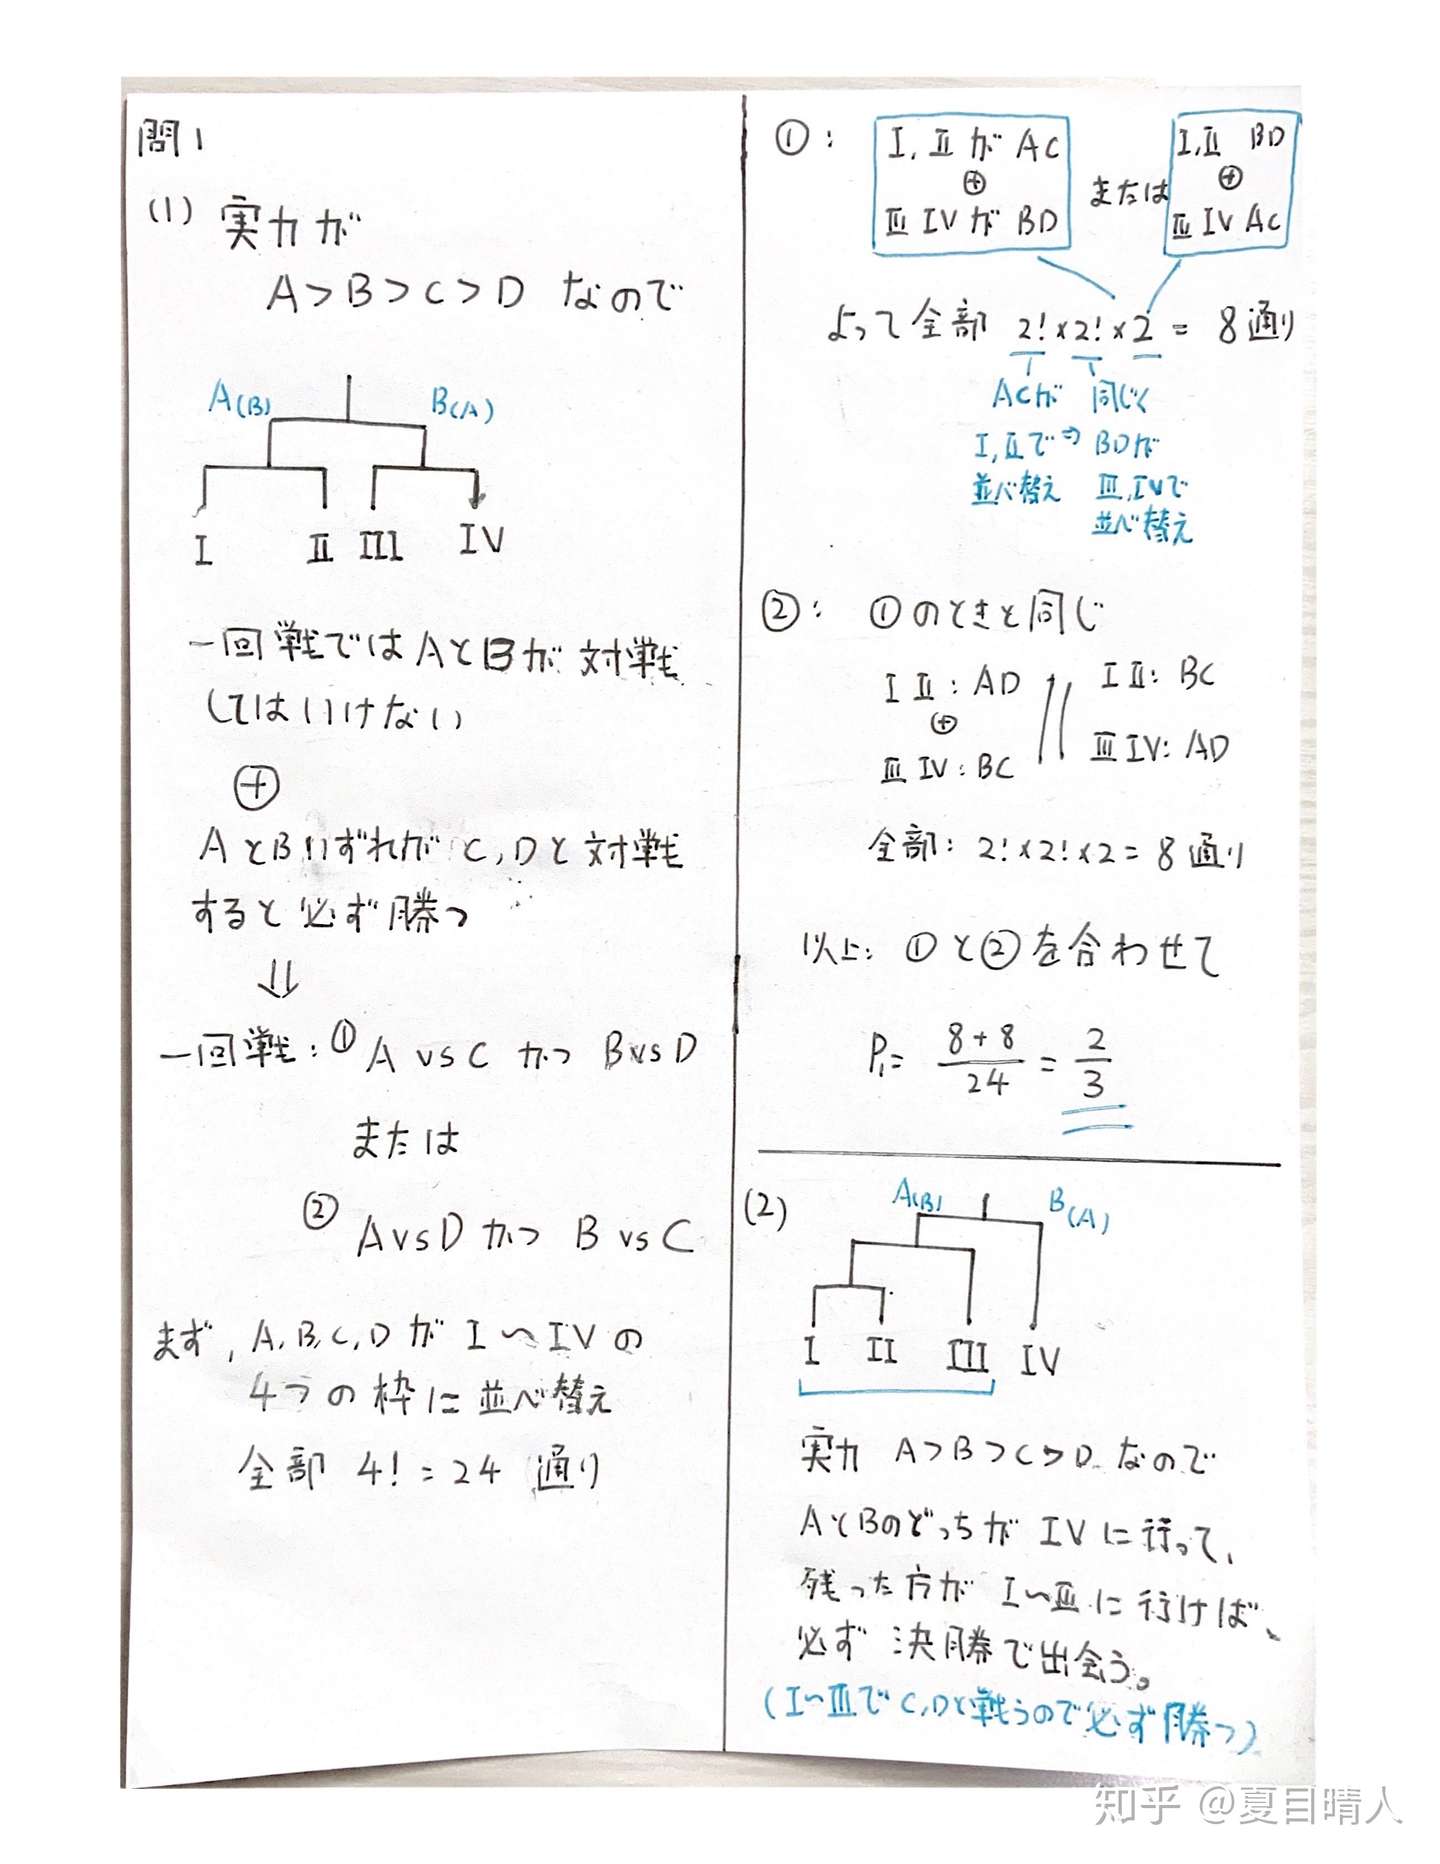 問1
(1) 実力が
A>B>C>D なので
A(B) B(A)
I II III IV
一回戦ではAとBが対戦
してはいけない
⊕
AとBいずれがC,Dと対戦
すると必ず勝つ
⇓
一回戦:① A vs C かつ B vs D
または
② A vs D かつ B vs C
まず,A,B,C,DがI〜IVの
4つの枠に並べ替え
全部 4!=24 通り
①:
I,IIがAC
⊕
III IVがBD
または
I,II BD
⊕
III IV AC
よって全部 2!×2!×2=8通り
ACが
I,IIで
並べ替え
⇒
同じく
BDが
III,IVで
並べ替え
②: ①のときと同じ
I II:AD
⊕
III IV:BC
//
I II:BC
III IV:AD
全部:2!×2!×2=8通り
以上:①と②を合わせて
P₁= 8+8/24 = 2/3
(2)
A(B) B(A)
I II III IV
実力 A>B>C>D なので
AとBのどっちがIVに行って、
残った方がI〜IIIに行けば、
必ず決勝で出会う。
(I〜IIIでC,Dと戦うので必ず勝つ)
知乎 @夏目晴人